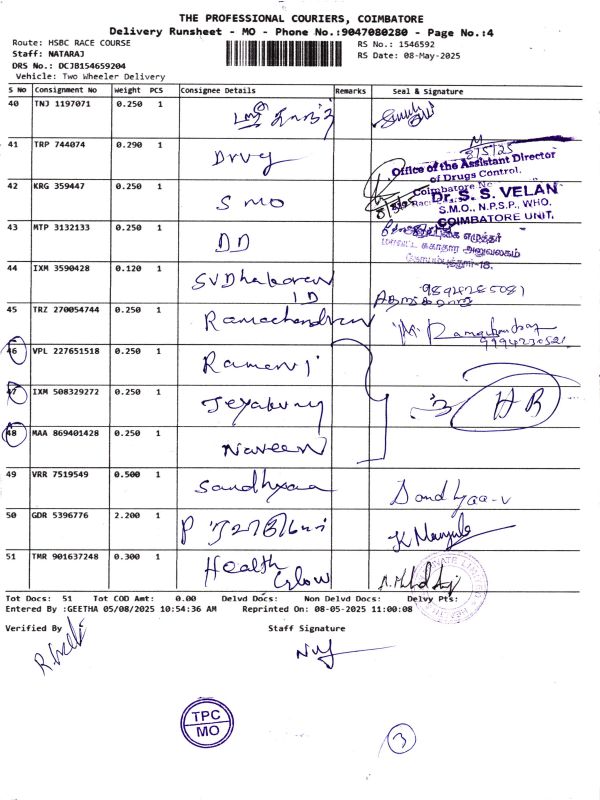 THE PROFESSIONAL COURIERS, COIMBATORE
Delivery Runsheet - MO - Phone No.:9047080280 - Page No.:4
Route: HSBC RACE COURSE
RS No.: 1546592
Staff: NATARAJ
RS Date: 08-May-2025
DRS No.: DCJB154659204
Vehicle: Two Wheeler Delivery
S No Consignment No Weight PCS Consignee Details Remarks Seal & Signature
40 TNJ 1197071 0.250 1
41 TRP 744074 0.290 1 Drug
8/5/25
Office of the Assistant Director
of Drugs Control,
Coimbatore
42 KRG 359447 0.250 1 SMO
Dr. S. S. VELAN
S.M.O., N.P.S.P., WHO.
COIMBATORE UNIT.
43 MTP 3132133 0.250 1 DD
எழுத்தர்
சுகாதார அலுவலகம்
44 IXM 3590428 0.120 1 SVDhakaran
ID
9894285081
45 TRZ 270054744 0.250 1 Ramachandran
M. Ramachandran
9994230521
46 VPL 227651518 0.250 1
47 IXM 508329272 0.250 1
3 HR
48 MAA 869401428 0.250 1 Naveen
49 VRR 7519549 0.500 1 Sandhyaa Sandhyaa-V
50 GDR 5396776 2.200 1 K Manjula
51 TMR 901637248 0.300 1 Health
Glow
Tot Docs: 51 Tot COD Amt: 0.00 Delvd Docs: Non Delvd Docs: Delvy Pts:
Entered By :GEETHA 05/08/2025 10:54:36 AM Reprinted On: 08-05-2025 11:00:08
Verified By Staff Signature
TPC
MO
3